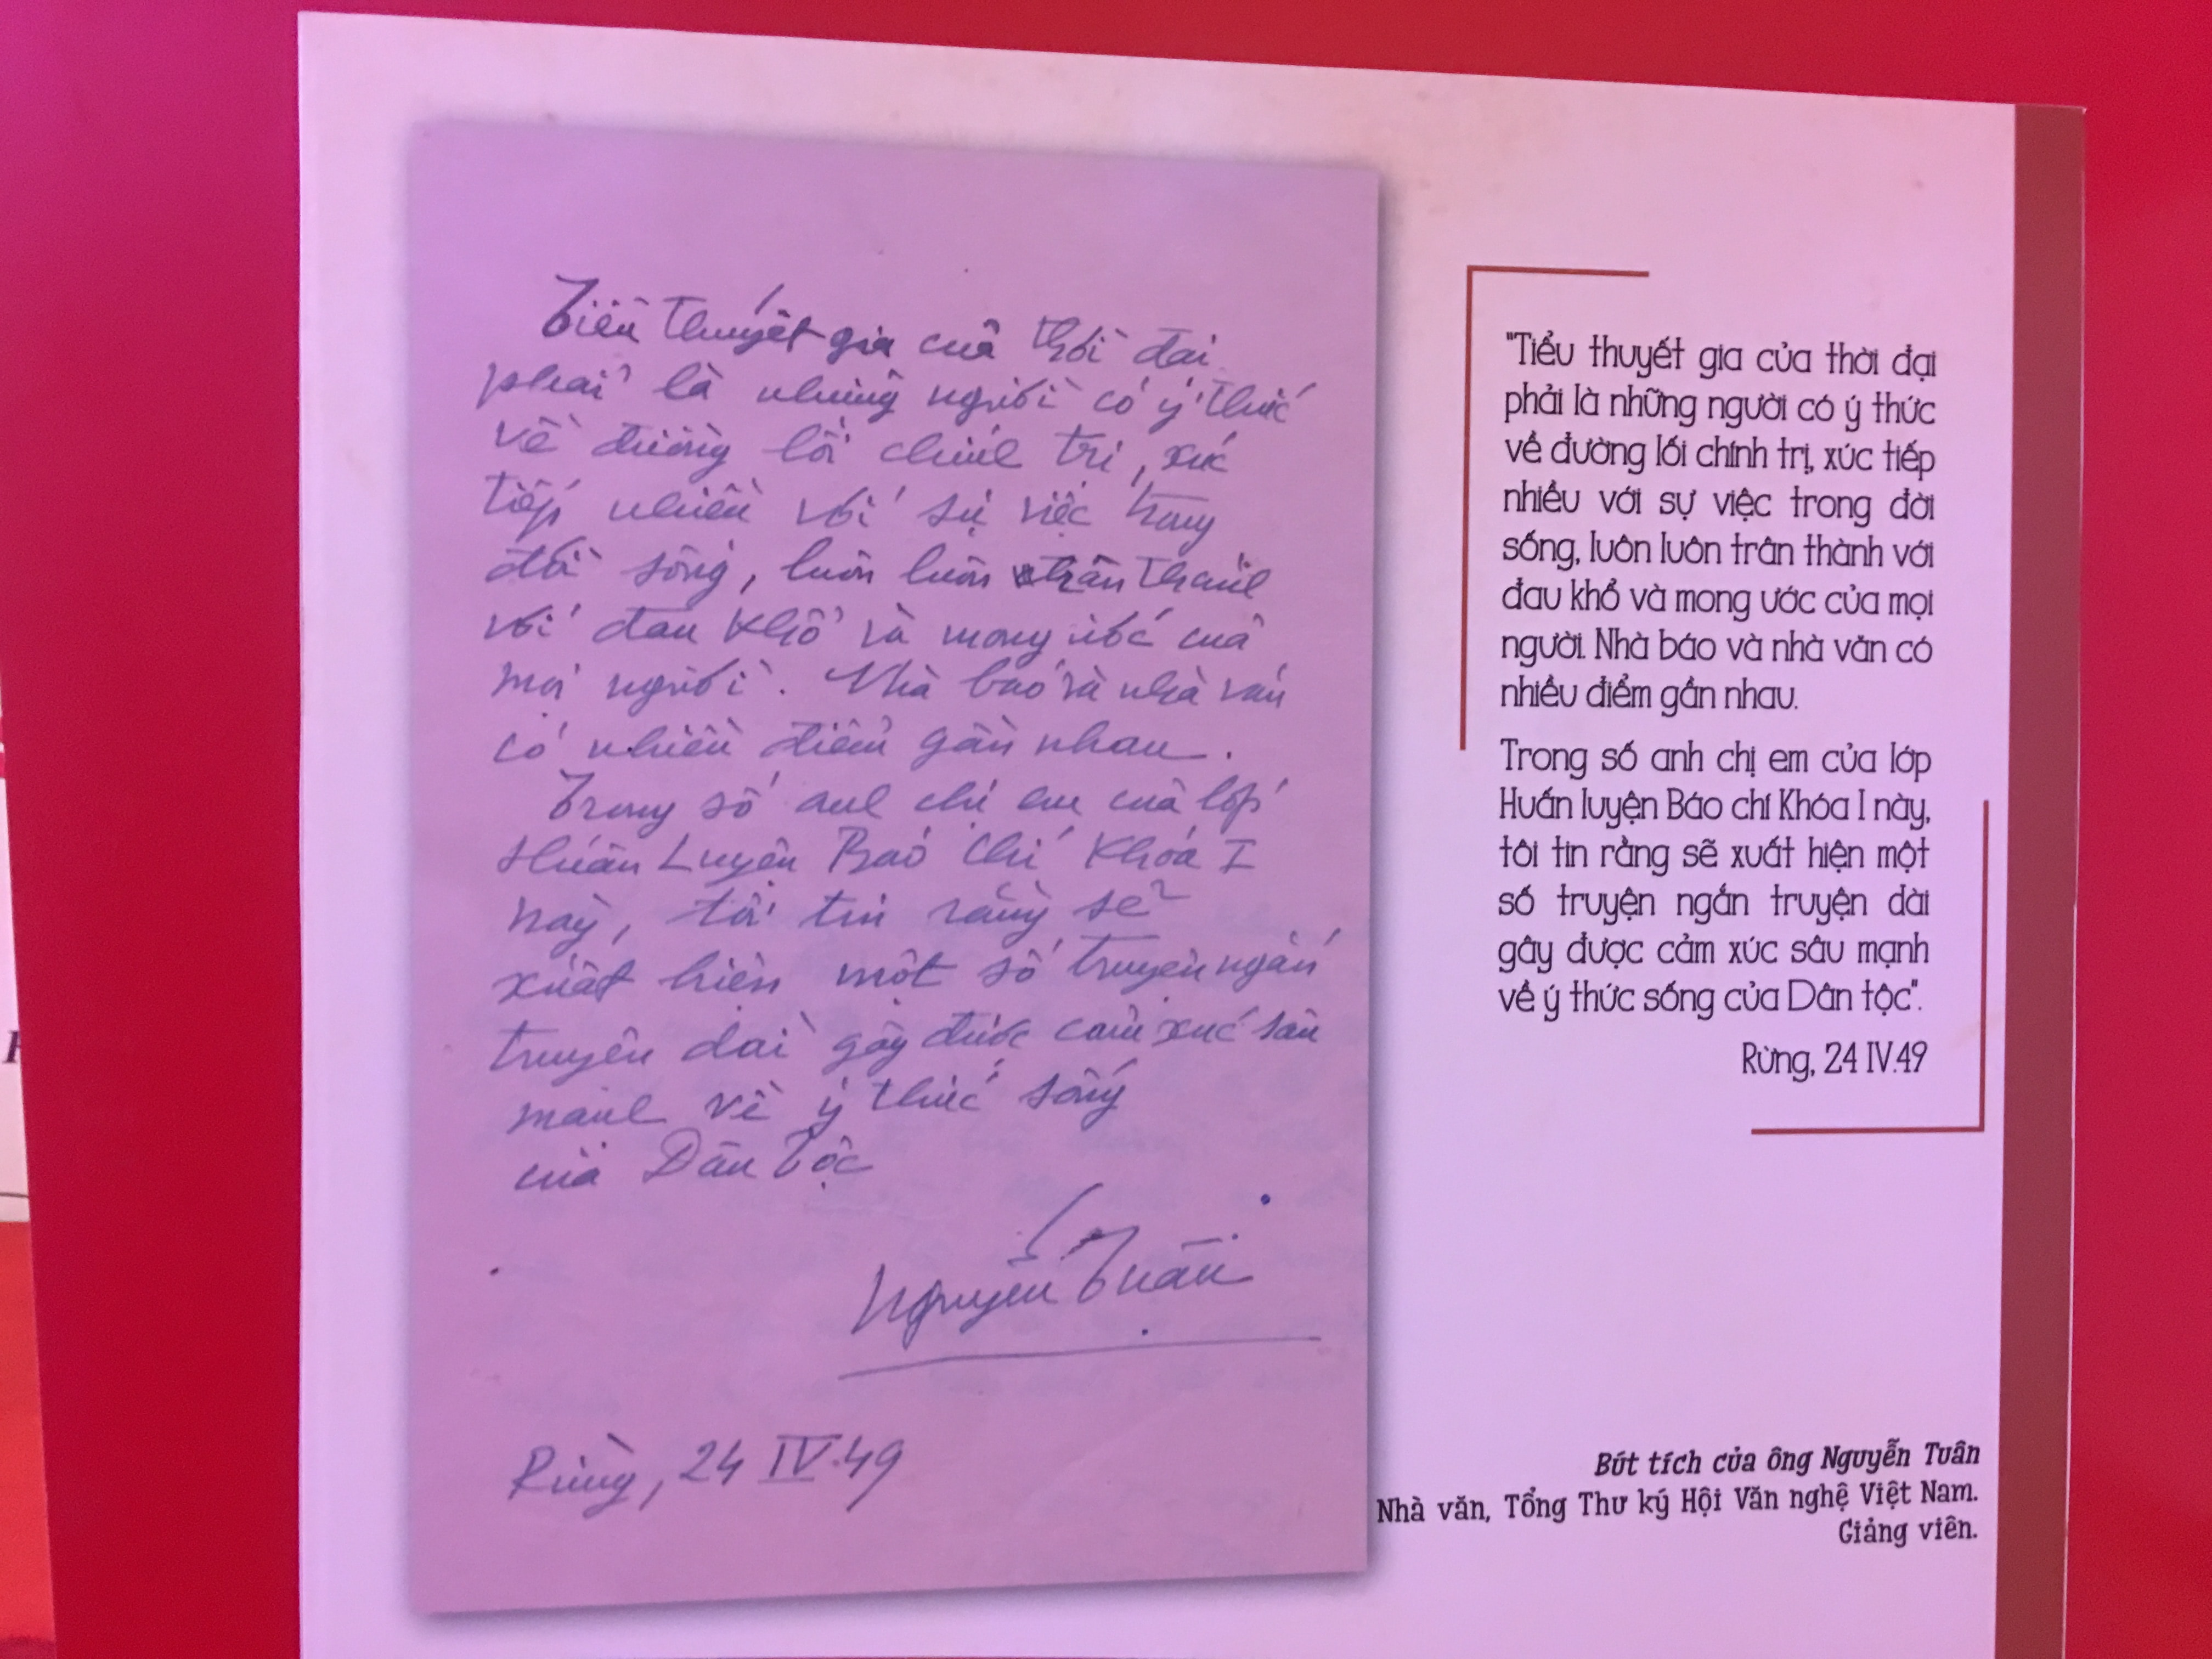 Tiểu thuyết gia của thời đại
phải là những người có ý thức
về đường lối chính trị, xúc
tiếp nhiều với sự việc trong
đời sống, luôn luôn trân thành
với đau khổ và mong ước của
mọi người. Nhà báo và nhà văn
có nhiều điểm gần nhau.
Trong số anh chị em của lớp
Huấn Luyện Báo Chí Khóa I
này, tôi tin rằng sẽ
xuất hiện một số truyện ngắn
truyện dài gây được cảm xúc sâu
mạnh về ý thức sống
của Dân Tộc
Nguyễn Tuân
Rừng, 24 IV.49
"Tiểu thuyết gia của thời đại
phải là những người có ý thức
về đường lối chính trị, xúc tiếp
nhiều với sự việc trong đời
sống, luôn luôn trân thành với
đau khổ và mong ước của mọi
người. Nhà báo và nhà văn có
nhiều điểm gần nhau.
Trong số anh chị em của lớp
Huấn luyện Báo chí Khóa I này,
tôi tin rằng sẽ xuất hiện một
số truyện ngắn truyện dài
gây được cảm xúc sâu mạnh
về ý thức sống của Dân tộc".
Rừng, 24 IV.49
Bút tích của ông Nguyễn Tuân
Nhà văn, Tổng Thư ký Hội Văn nghệ Việt Nam.
Giảng viên.